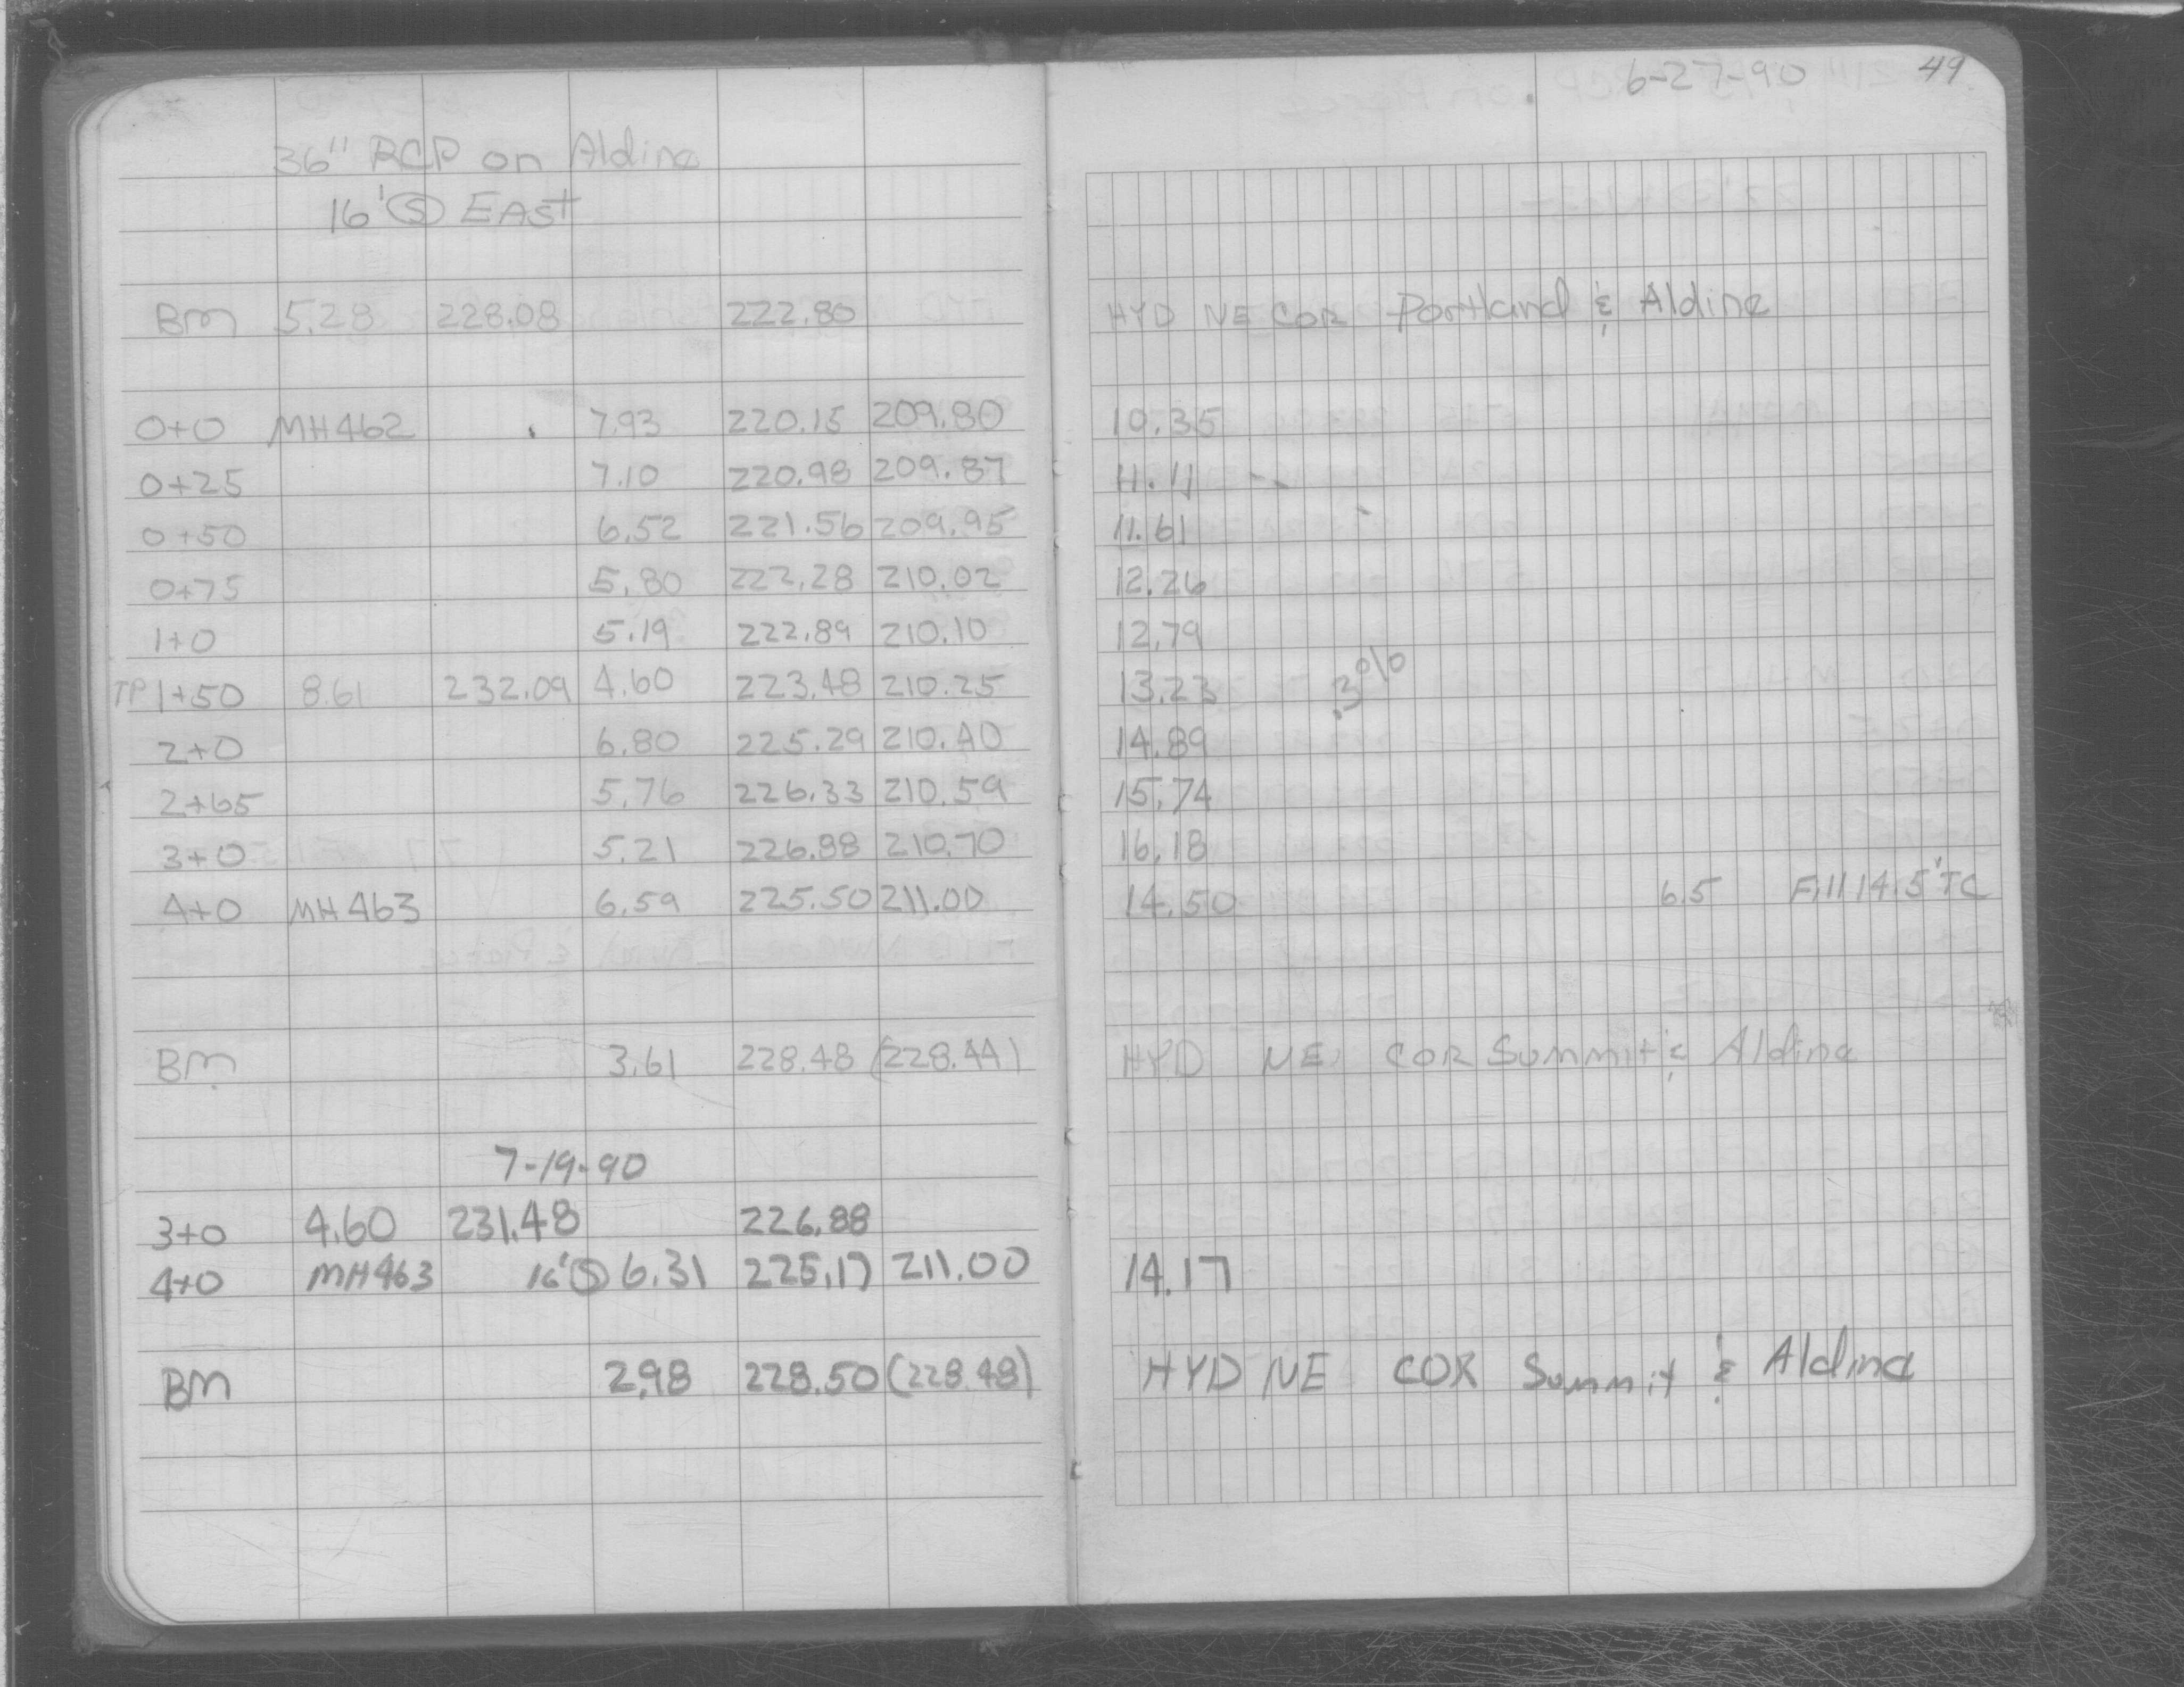 6-27-90 49
36" RCP on Aldine
16' Ⓢ EAST
BM 5.28 228.08 222.80 HYD NE COR Portland & Aldine
0+0 MH462 7.93 220.15 209.80 10.35
0+25 7.10 220.98 209.87 11.11
0+50 6.52 221.56 209.95 11.61
0+75 5.80 222.28 210.02 12.26
1+0 5.19 222.89 210.10 12.79
TP 1+50 8.61 232.09 4.60 223.48 210.25 13.23 .3%
2+0 6.80 225.29 210.40 14.89
2+65 5.76 226.33 210.59 15.74
3+0 5.21 226.88 210.70 16.18
4+0 MH463 6.59 225.50 211.00 14.50 6.5 Fill 14.5' TC
BM 3.61 228.48 (228.44) HYD NE COR Summit & Aldine
7-19-90
3+0 4.60 231.48 226.88
4+0 MH463 16' Ⓢ 6.31 225.17 211.00 14.17
BM 2.98 228.50 (228.48) HYD NE COR Summit & Aldine